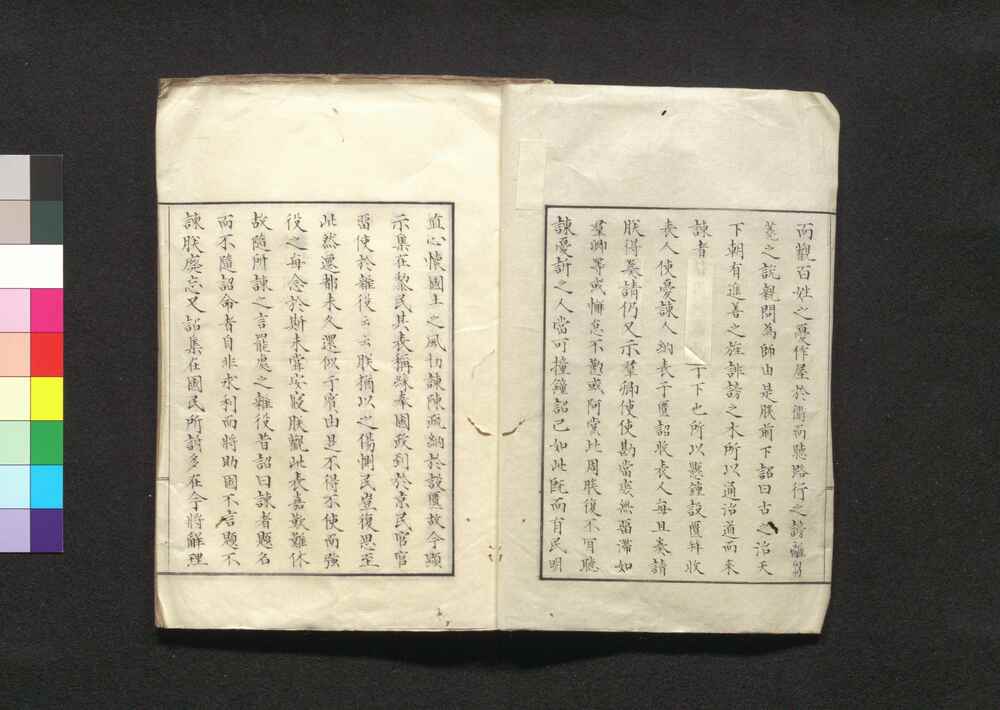 而觀百姓之憂作屋於衢而聽路行之謗雖蒭
蕘之說親問為師由是朕前下詔曰古之治天
下朝有進善之旌誹謗之木所以通治道而来
諫者 于下也所以懸鍾設匱拜收
表人使憂諫人納表于匱詔收表人每旦奏請
朕得奏請仍又示羣卿使便勘當庶無留滯如
羣卿等或懈怠不懃或阿黨比周朕復不肯聽
諫憂訴之人當可撞鍾詔已如此既而有民明
直心懷國土之風切諫陳疏納於設匱故今顯
示集在黎民其表稱緣奉國政到於京民官官
留使於雜役云云朕猶以之傷惻民豈復思至
此然遷都未久還似于賓由是不得不使而強
役之每念於斯未甞安寢朕觀此表嘉歎難休
故隨所諫之言罷處之雜役昔詔曰諫者題名
而不隨詔命者自非求利而將助國不言題不
諫朕癈忘又詔集在國民所訴多在今將解理